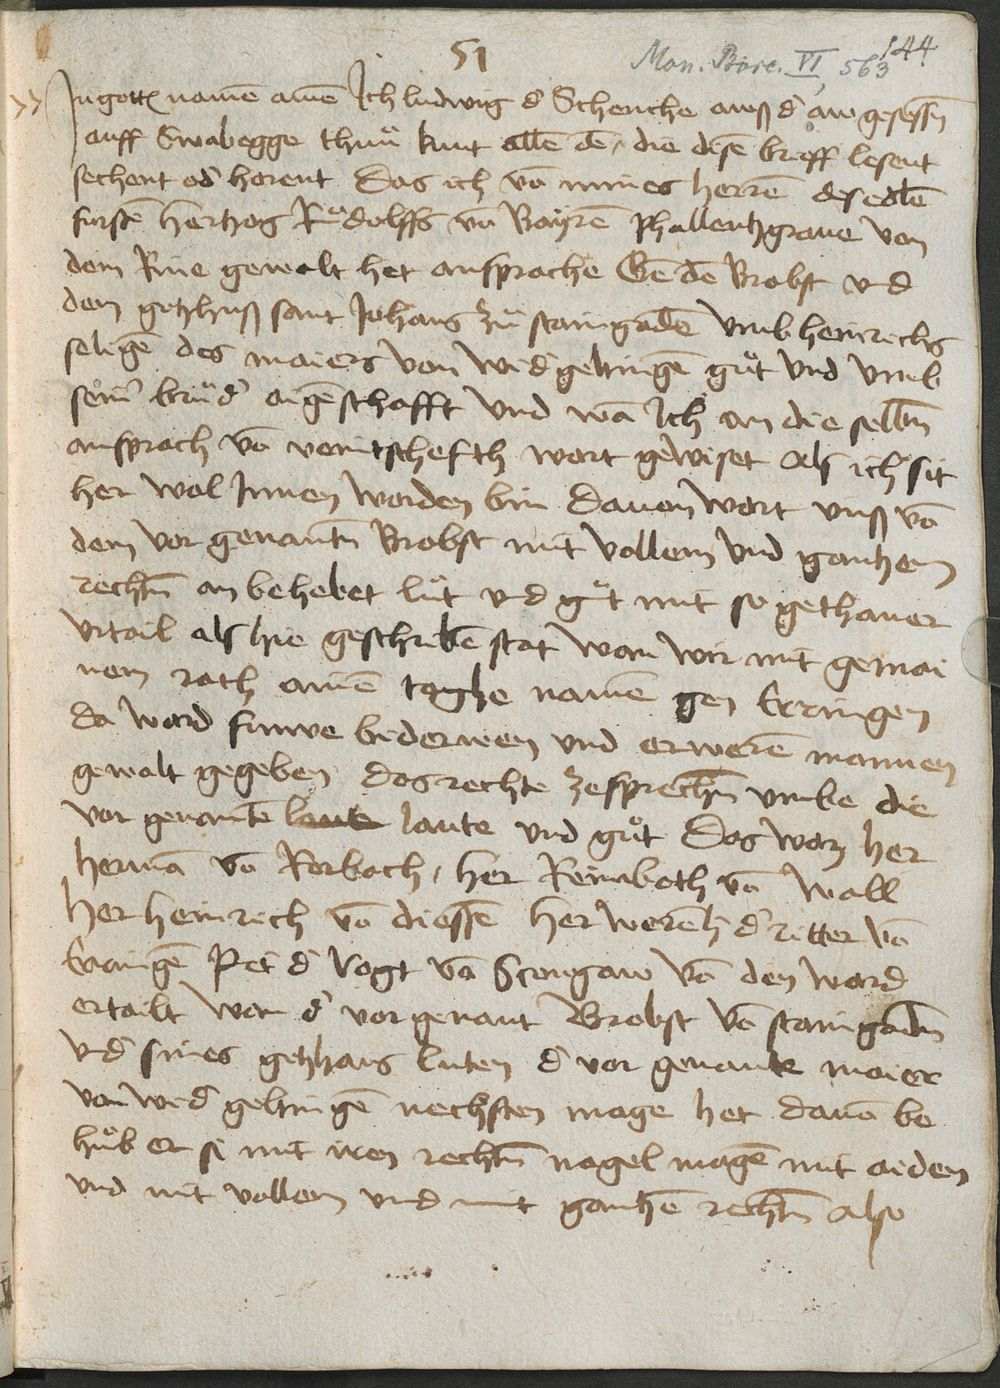 51
Mon. Boic. VI, 563
144
In gott namē amē Ich ludwig d' Schenche auß d' aw gesessn
auff Swabegge thuͦ kunt allē dē, die disē brieff lesent
sechent od' horent Das ich vō mines herrē des edlē
furstē hertzog Ruͦdolffs vō Bayrē Phallentzgraue von
dem Rine gewalt het ansprache Gē dē Brobst vnd
dem gotzhuß sant Johans zuͦ staingadē vmb heinrichs
seligē des maiers von wid'geltingē guͦt vnd vmb
sein' bruͤd' aigēschafft vnd wā Ich an die selbn
ansprach vō veintschefth wart gewiset als ich sit
her wol Innen worden bin Dauon wart vnß vō
dem vor genantn Brobst mit vollem vnd gantzem
rechtn an behebet luͤt vnd guͦt mit so gethaner
vrtail als hie geschribē stat wan wir mit gemai
nem rath ainē taghe namē gen Erringen
da ward funve bederwen vnd erwerē mannen
gewalt gegeben das rechte zesprechn vmbe die
vor genantē laute vnd guͦt Das waz her
hermā vō Rorbach, her Reinboth vō Wall
her heinrich vō diessē her Werēh d' ritter vō
Erringē Pet' d' vogt vō Scongaw vō den ward
ertailt wan d' vorgenant Brobst vō staingadn
vnd sines gotzhaus luten d' vor genante maier
von wid'geltingē nechsten mage het dauō be
huͦb er si mit iren rechtn nagel magē mit aiden
vnd mit vollem vnd mit gantzē rechtn also